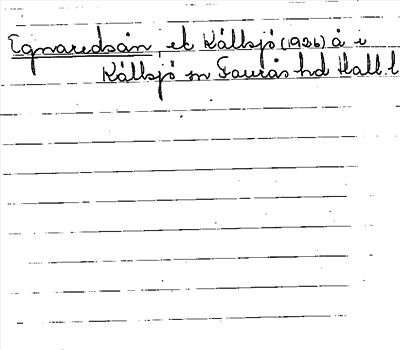 Egnaredsån, el Källsjö (1926) å i
Källsjö sn Faurås hd Hall. l